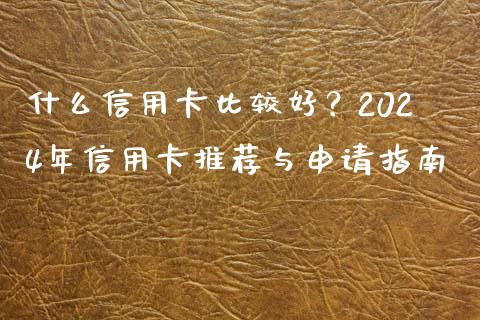 什么信用卡比较好？202
4年信用卡推荐与申请指南